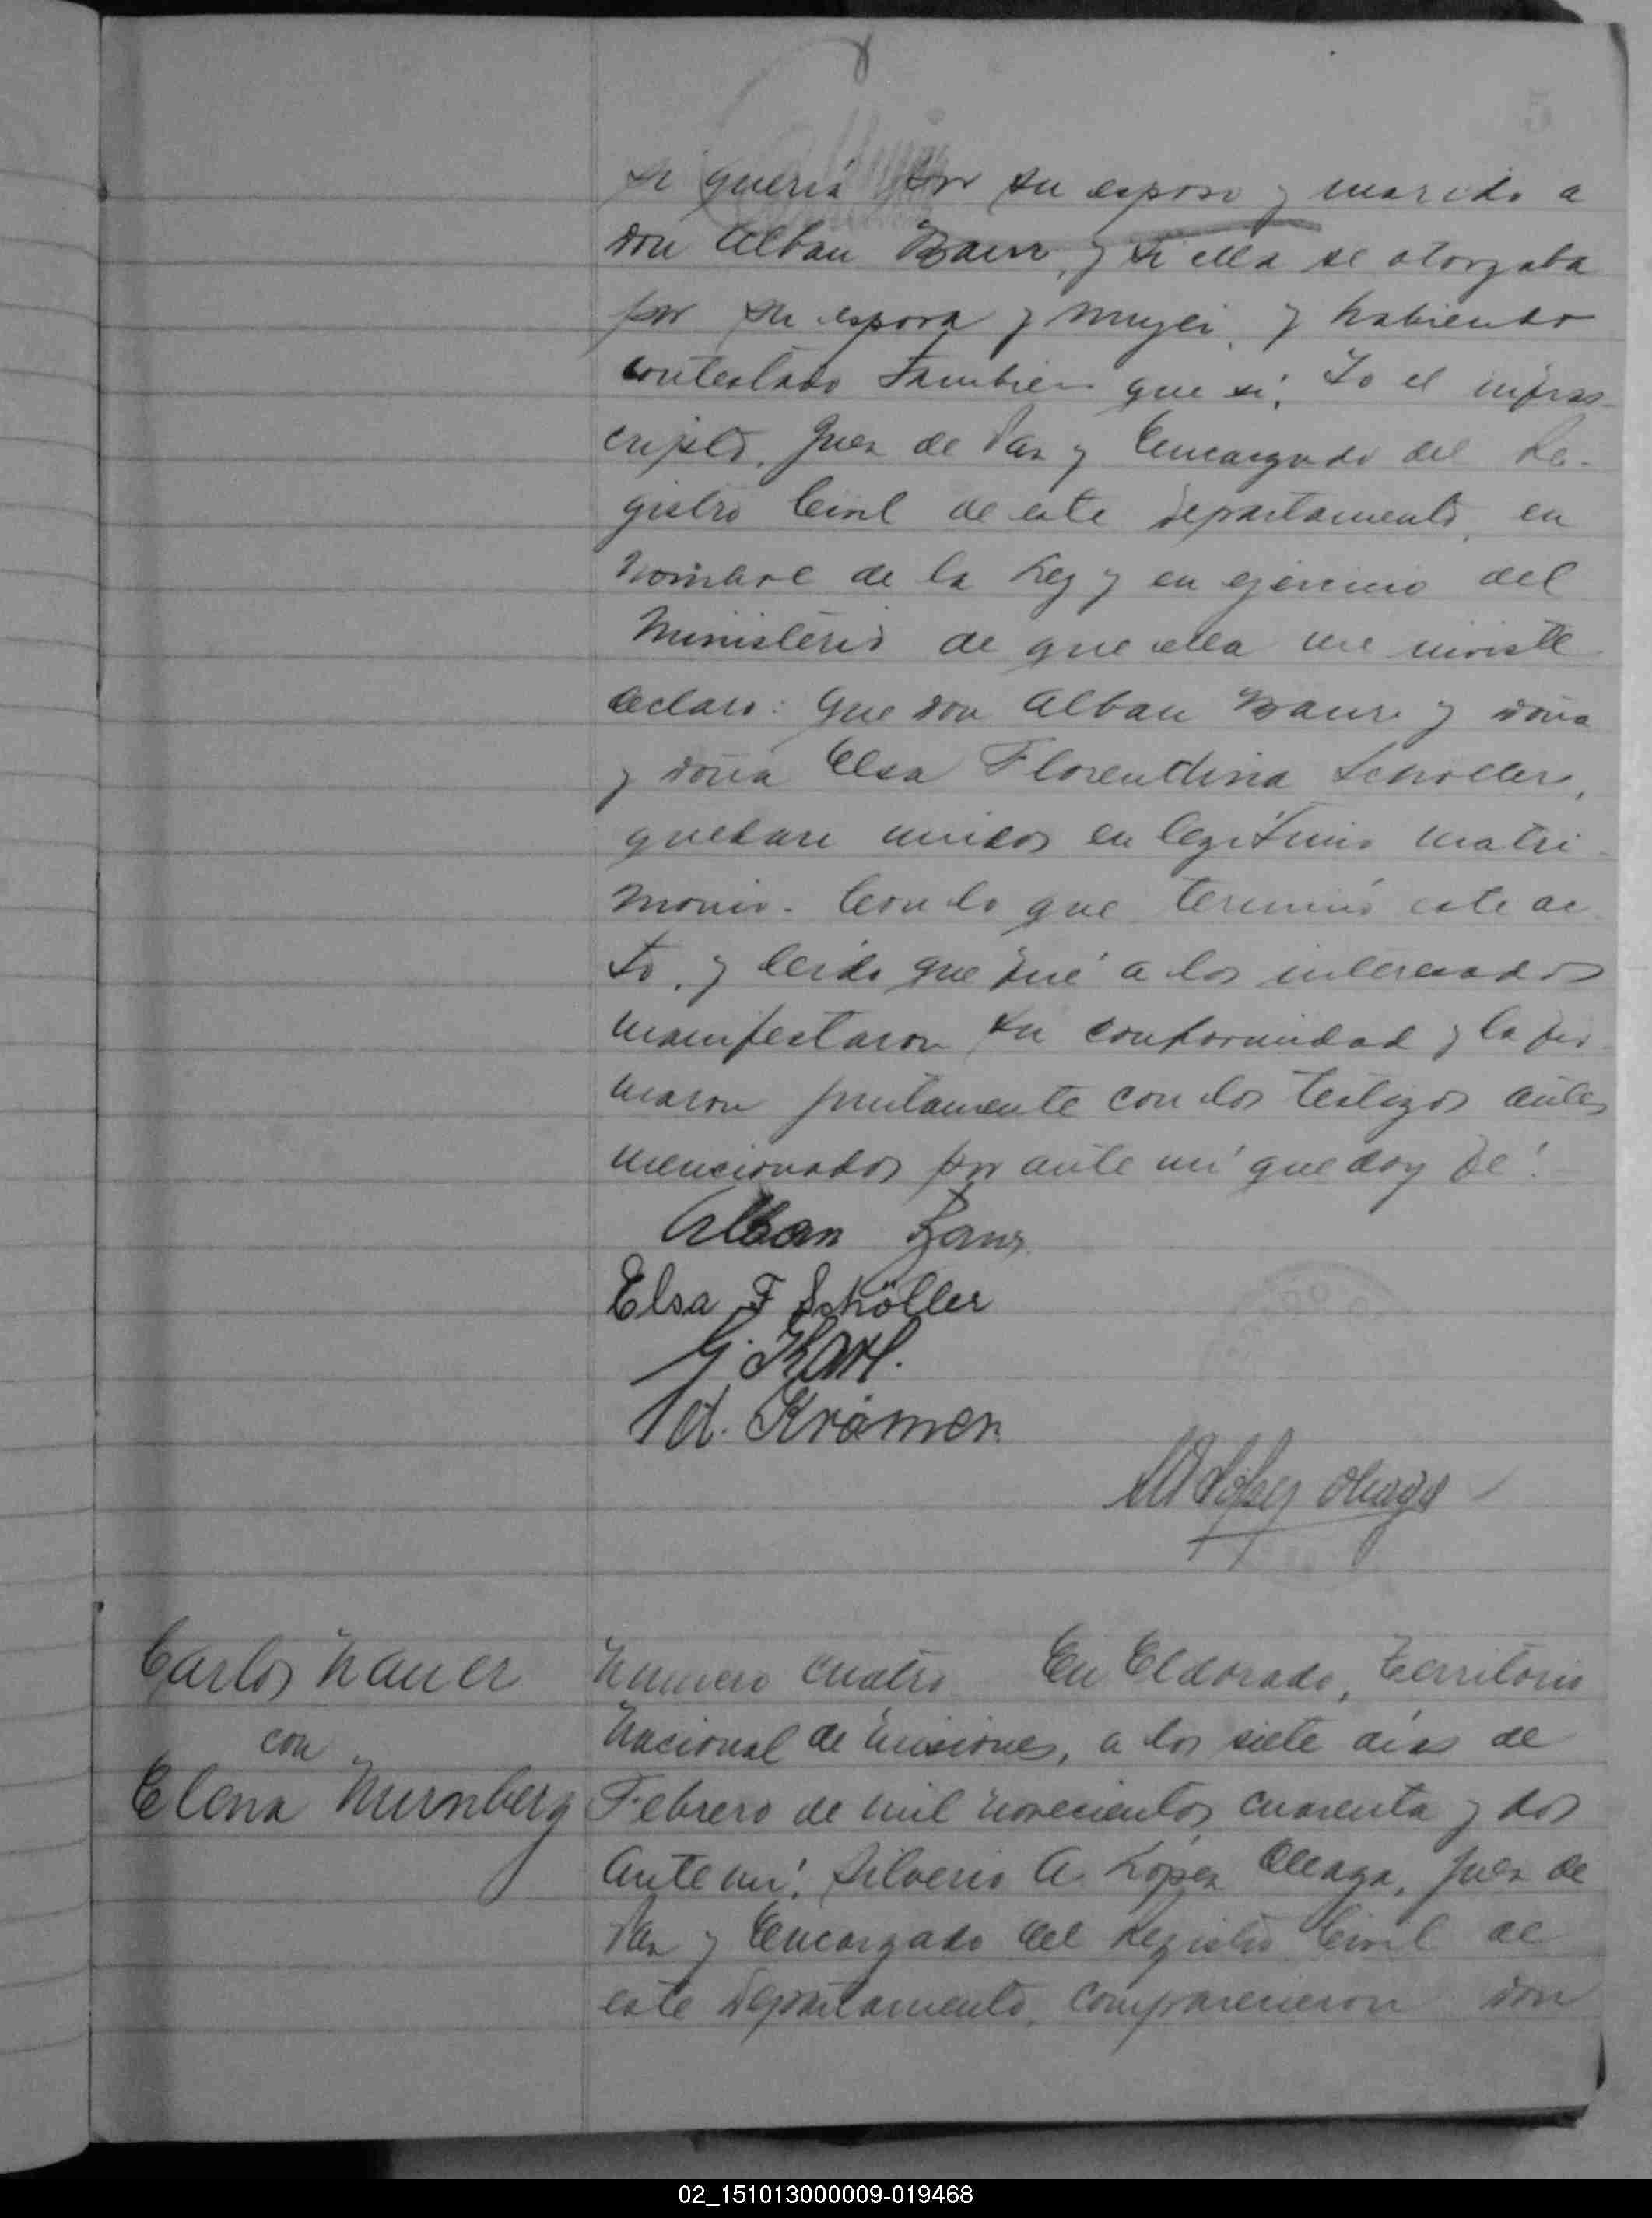 5
si quería por su esposo y marido a
don Alban Baur, y si ella se otorgaba
por su esposa y mujer, y habiendo
contestado tambien que sí; Yo el infras-
cripto, Juez de Paz y Encargado del Re-
gistro Civil de este Departamento, en
nombre de la Ley y en ejercicio del
Ministerio de que ella me inviste
declaro: Que don Alban Baur y doña
y doña Elsa Florentina Schöller,
quedan unidos en legítimo matri-
monio. Con lo que terminó este ac-
to, y leído que fué a los interesados
manifestaron su conformidad y la fir-
maron juntamente con los testigos antes
mencionados por ante mí que doy fé.
Alban Baur
Elsa F Schöller
G. Karl.
Ad. Krämer.
López Oleaga
Carlos Nauer
con
Elena Nurnberg
Número cuatro En Eldorado, Territorio
Nacional de Misiones, a los siete días de
Febrero de mil novecientos cuarenta y dos
Ante mí, Silverio A. López Oleaga, Juez de
Paz y Encargado del Registro Civil de
este Departamento, comparecieron don
02_151013000009-019468